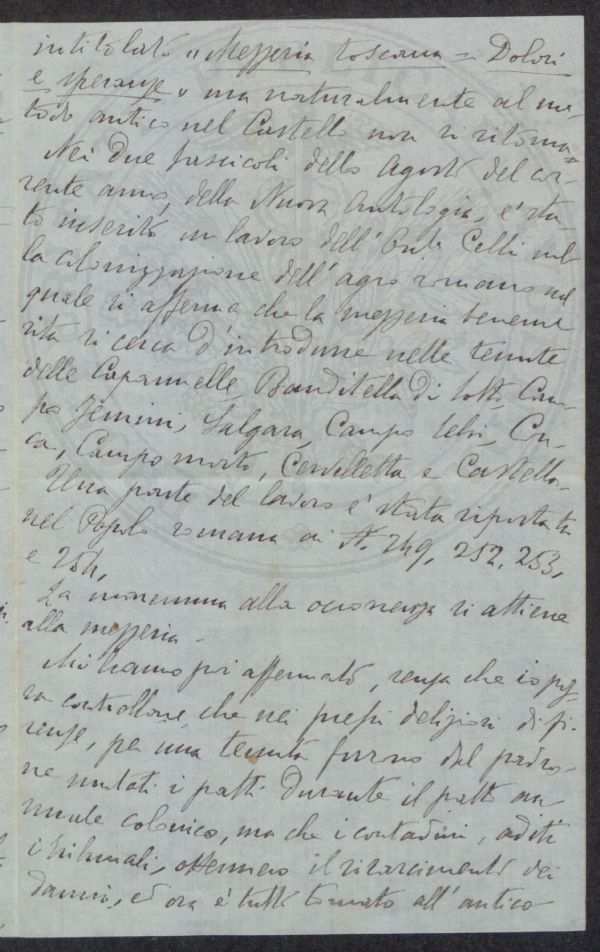 intitolato "Mezzeria toscana = Dolori
e speranze" ma naturalmente al me-
todo antico nel Castello non si ritorna =
Nei due fascicoli dello Agosto del cor-
rente anno, della Nuova Antologia, e' sta-
to inserito un lavoro dell' Celli sul-
la colonizzazione dell' agro romano nel
quale si afferma che la mezzeria
si cerca d'introdurre nelle tenute
delle Capannelle, Banditella di sotto, Cam-
po Jemini, Salgara, Campo Selvi, Con-
ca, Campo morto, Cervelletta e Castello.
Una parte del lavoro e' stata riportata
nel Popolo romano ai N. 249, 252, 253,
e 254,
La maremma alla occorrenza si attiene
alla mezzeria -
Mi hanno poi affermato, senza che io pos-
sa controllare, che nei pressi deliziosi di Fi-
renze, per una tenuta furono dal padro-
ne mutati i patti durante il patto an-
nuale colonico, ma che i contadini, aditi
i tribunali, ottennero il risarcimento dei
danni, ed ora e' tutto tornato all' antico